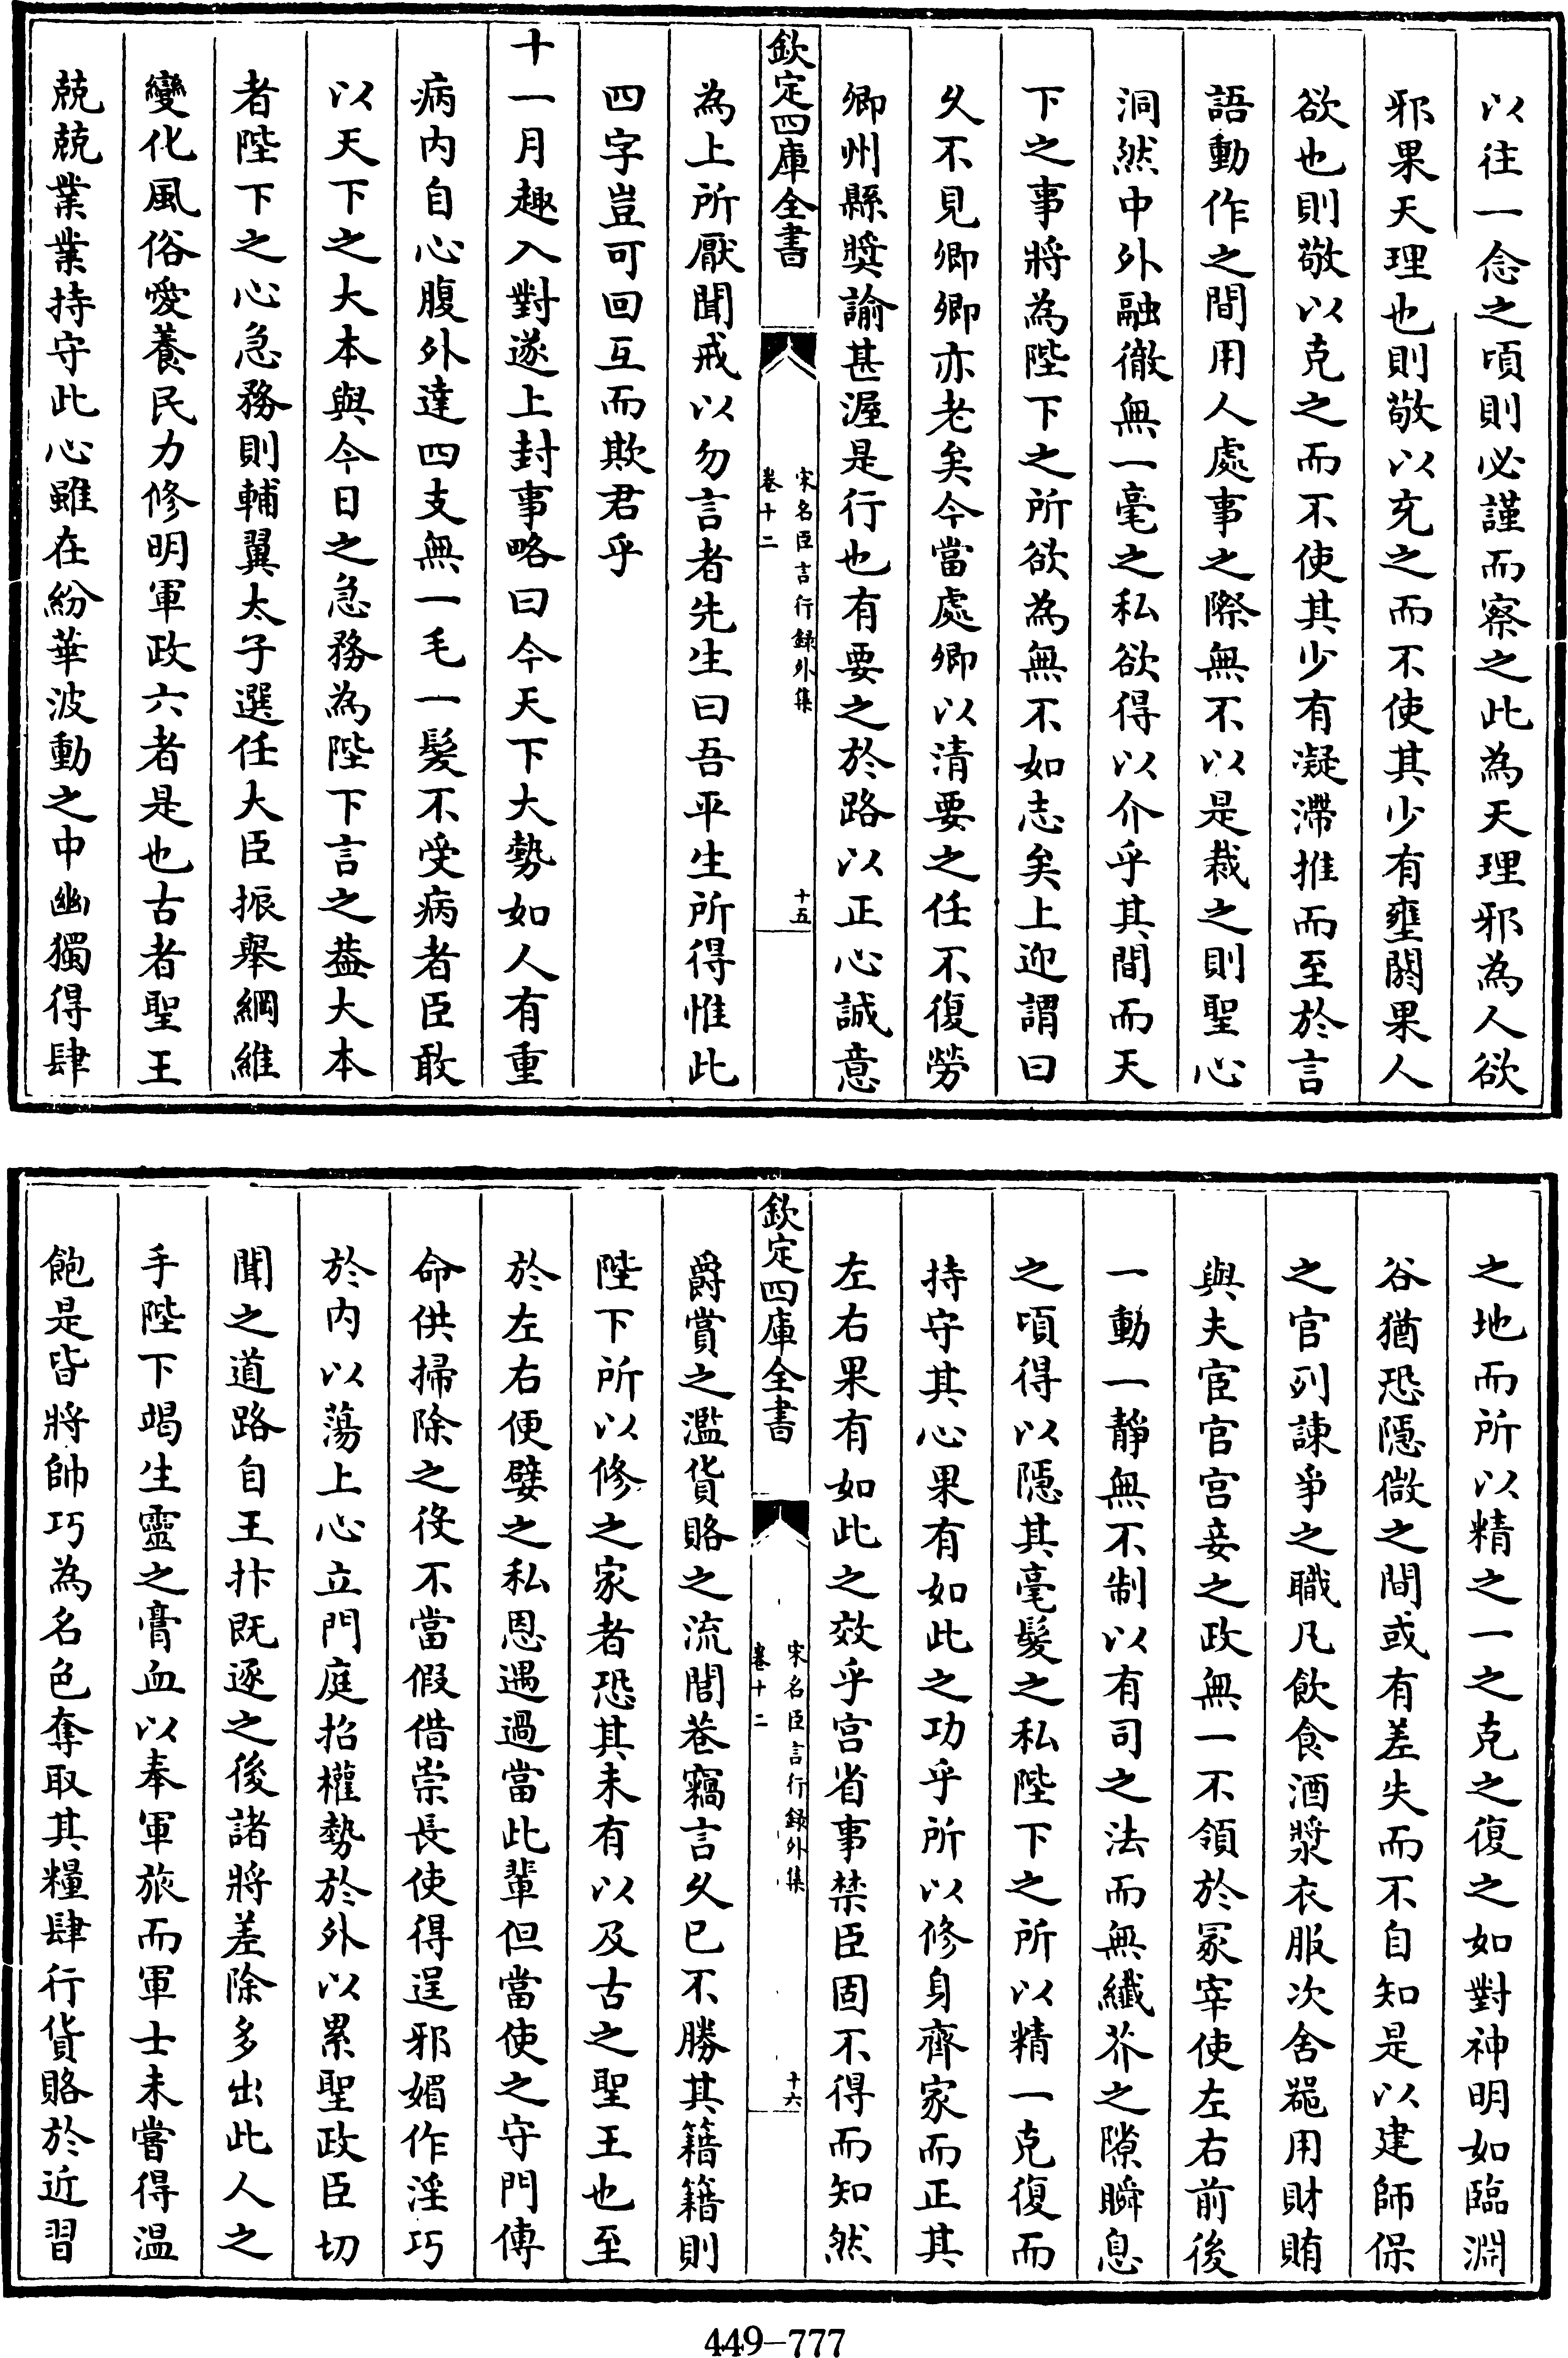 以往一念之頃則必謹而察之此為天理邪為人欲
邪果天理也則敬以充之而不使其少有壅閼果人
欲也則敬以克之而不使其少有凝滯推而至於言
語動作之間用人處事之際無不以是裁之則聖心
洞然中外融徹無一毫之私欲得以介乎其間而天
下之事將為陛下之所欲為無不如志矣上迎謂曰
乆不見卿卿亦老矣今當處卿以清要之任不復勞
卿州縣奬諭甚渥是行也有要之於路以正心誠意
欽定四庫全書
宋名臣言行録外集
卷十二
十五
為上所厭聞戒以勿言者先生曰吾平生所得惟此
四字豈可回互而欺君乎
十一月趣入對遂上封事略曰今天下大勢如人有重
病内自心腹外達四支無一毛一髮不受病者臣敢
以天下之大本與今日之急務為陛下言之葢大本
者陛下之心急務則輔翼太子選任大臣振舉綱維
變化風俗愛養民力修明軍政六者是也古者聖王
兢兢業業持守此心雖在紛華波動之中幽獨得肆
之地而所以精之一之克之復之如對神明如臨淵
谷猶恐隱微之間或有差失而不自知是以建師保
之官列諫爭之職凡飲食酒漿衣服次舍器用財賄
與夫宦官宫妾之政無一不領於冢宰使左右前後
一動一靜無不制以有司之法而無纖芥之隙瞬息
之頃得以隱其毫髮之私陛下之所以精一克復而
持守其心果有如此之功乎所以修身齊家而正其
左右果有如此之效乎宫省事禁臣固不得而知然
欽定四庫全書
宋名臣言行録外集
卷十二
十六
爵賞之濫貨賂之流閭巷竊言乆已不勝其籍籍則
陛下所以修之家者恐其未有以及古之聖王也至
於左右便嬖之私恩遇過當此輩但當使之守門傳
命供掃除之役不當假借崇長使得逞邪媚作淫巧
於内以蕩上心立門庭招權勢於外以累聖政臣切
聞之道路自王抃既逐之後諸將差除多出此人之
手陛下竭生靈之膏血以奉軍旅而軍士未嘗得温
飽是皆將帥巧為名色奪取其糧肆行貨賂於近習
449-777